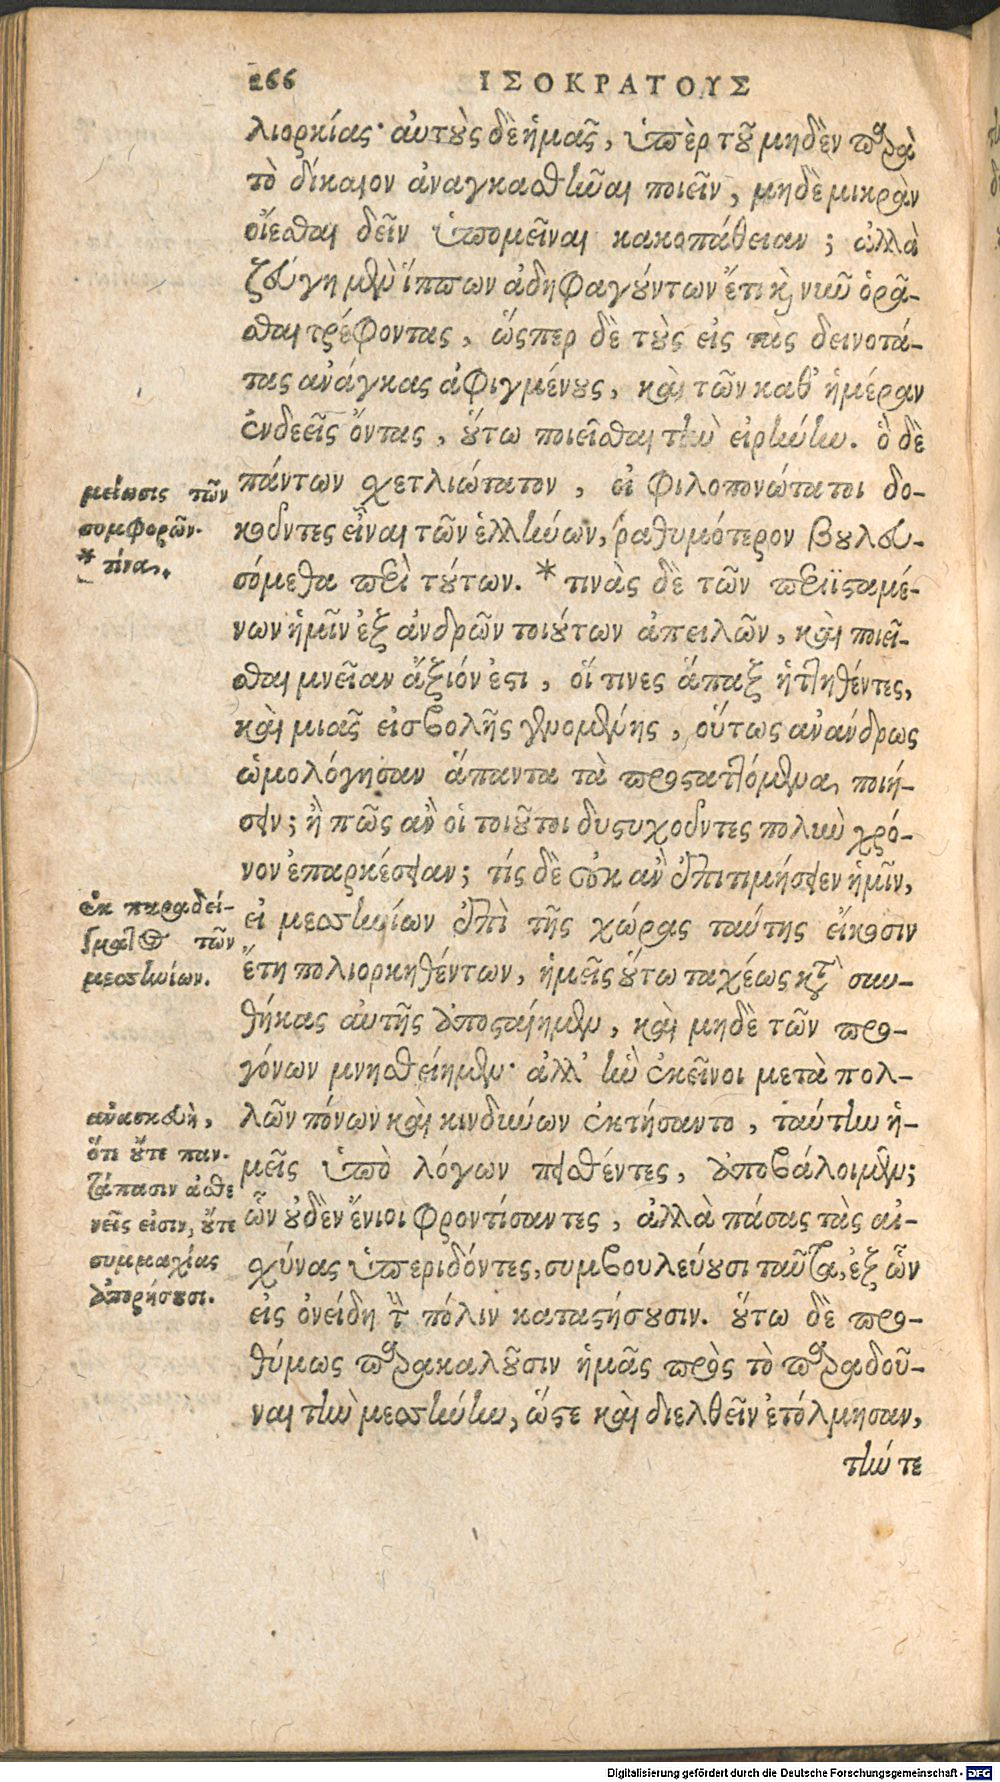 266 ΙΣΟΚΡΑΤΟΥΣ
λιορκίας· αὐτοὺς δὲ ἡμᾶς, ὑπὲρ τοῦ μηδὲν παρὰ
τὸ δίκαιον ἀναγκασθῆναι ποιεῖν, μηδὲ μικρὰν
οἴεσθαι δεῖν ὑπομεῖναι κακοπάθειαν; ἀλλὰ
ζεύγη μὲν ἵππων ἀδηφαγούντων ἔτι καὶ νῦν ὁρᾶ-
σθαι τρέφοντας, ὥσπερ δὲ τοὺς εἰς τὰς δεινοτά-
τας ἀνάγκας ἀφιγμένους, καὶ τῶν καθ' ἡμέραν
ἐνδεεῖς ὄντας, οὕτω ποιεῖσθαι τὴν εἰρήνην. ὃ δὲ
πάντων σχετλιώτατον, εἰ φιλοπονώτατοι δο-
κοῦντες εἶναι τῶν ἑλλήνων, ῥαθυμότερον βουλευ-
σόμεθα περὶ τούτων. * τινὰς δὲ τῶν περιϊσταμέ-
νων ἡμῖν ἐξ ἀνδρῶν τοιούτων ἀπειλῶν, καὶ ποιεῖ-
σθαι μνεῖαν ἄξιόν ἐστι, οἵ τινες ἅπαξ ἡττηθέντες,
καὶ μιᾶς εἰσβολῆς γενομένης, οὕτως ἀνάνδρως
ὡμολόγησαν ἅπαντα τὰ προσταττόμενα ποιή-
σειν; ἢ πῶς ἂν οἱ τοιοῦτοι δυστυχοῦντες πολὺν χρό-
νον ἐπαρκέσειαν; τίς δὲ οὐκ ἂν ἐπιτιμήσειεν ἡμῖν,
εἰ μεσσηνίων ἐπὶ τῆς χώρας ταύτης εἴκοσιν
ἔτη πολιορκηθέντων, ἡμεῖς οὕτω ταχέως κατὰ συν-
θήκας αὐτῆς ἀποσταίημεν, καὶ μηδὲ τῶν προ-
γόνων μνησθείημεν· ἀλλ' ἣν ἐκεῖνοι μετὰ πολ-
λῶν πόνων καὶ κινδύνων ἐκτήσαντο, ταύτην ἡ-
μεῖς ὑπὸ λόγων πεισθέντες, ἀποβάλοιμεν;
ὧν οὐδὲν ἔνιοι φροντίσαντες, ἀλλὰ πάσας τὰς αἰ-
σχύνας ὑπεριδόντες, συμβουλεύουσι ταῦτα, ἐξ ὧν
εἰς ὀνείδη τὴν πόλιν καταστήσουσιν. οὕτω δὲ προ-
θύμως παρακαλοῦσιν ἡμᾶς πρὸς τὸ παραδοῦ-
ναι τὴν μεσσήνην, ὥστε καὶ διελθεῖν ἐτόλμησαν,
τήν τε
μείωσις τῶν
συμφορῶν.
* τίνα.
ἐκ παραδεί-
γματος τῶν
μεσσηνίων.
ἀνασκευὴ,
ὅτι οὔτε παν-
τάπασιν ἀσθε
νεῖς εἰσιν, οὔτε
συμμαχίας
ἀπορήσουσι.
Digitalisierung gefördert durch die Deutsche Forschungsgemeinschaft - DFG